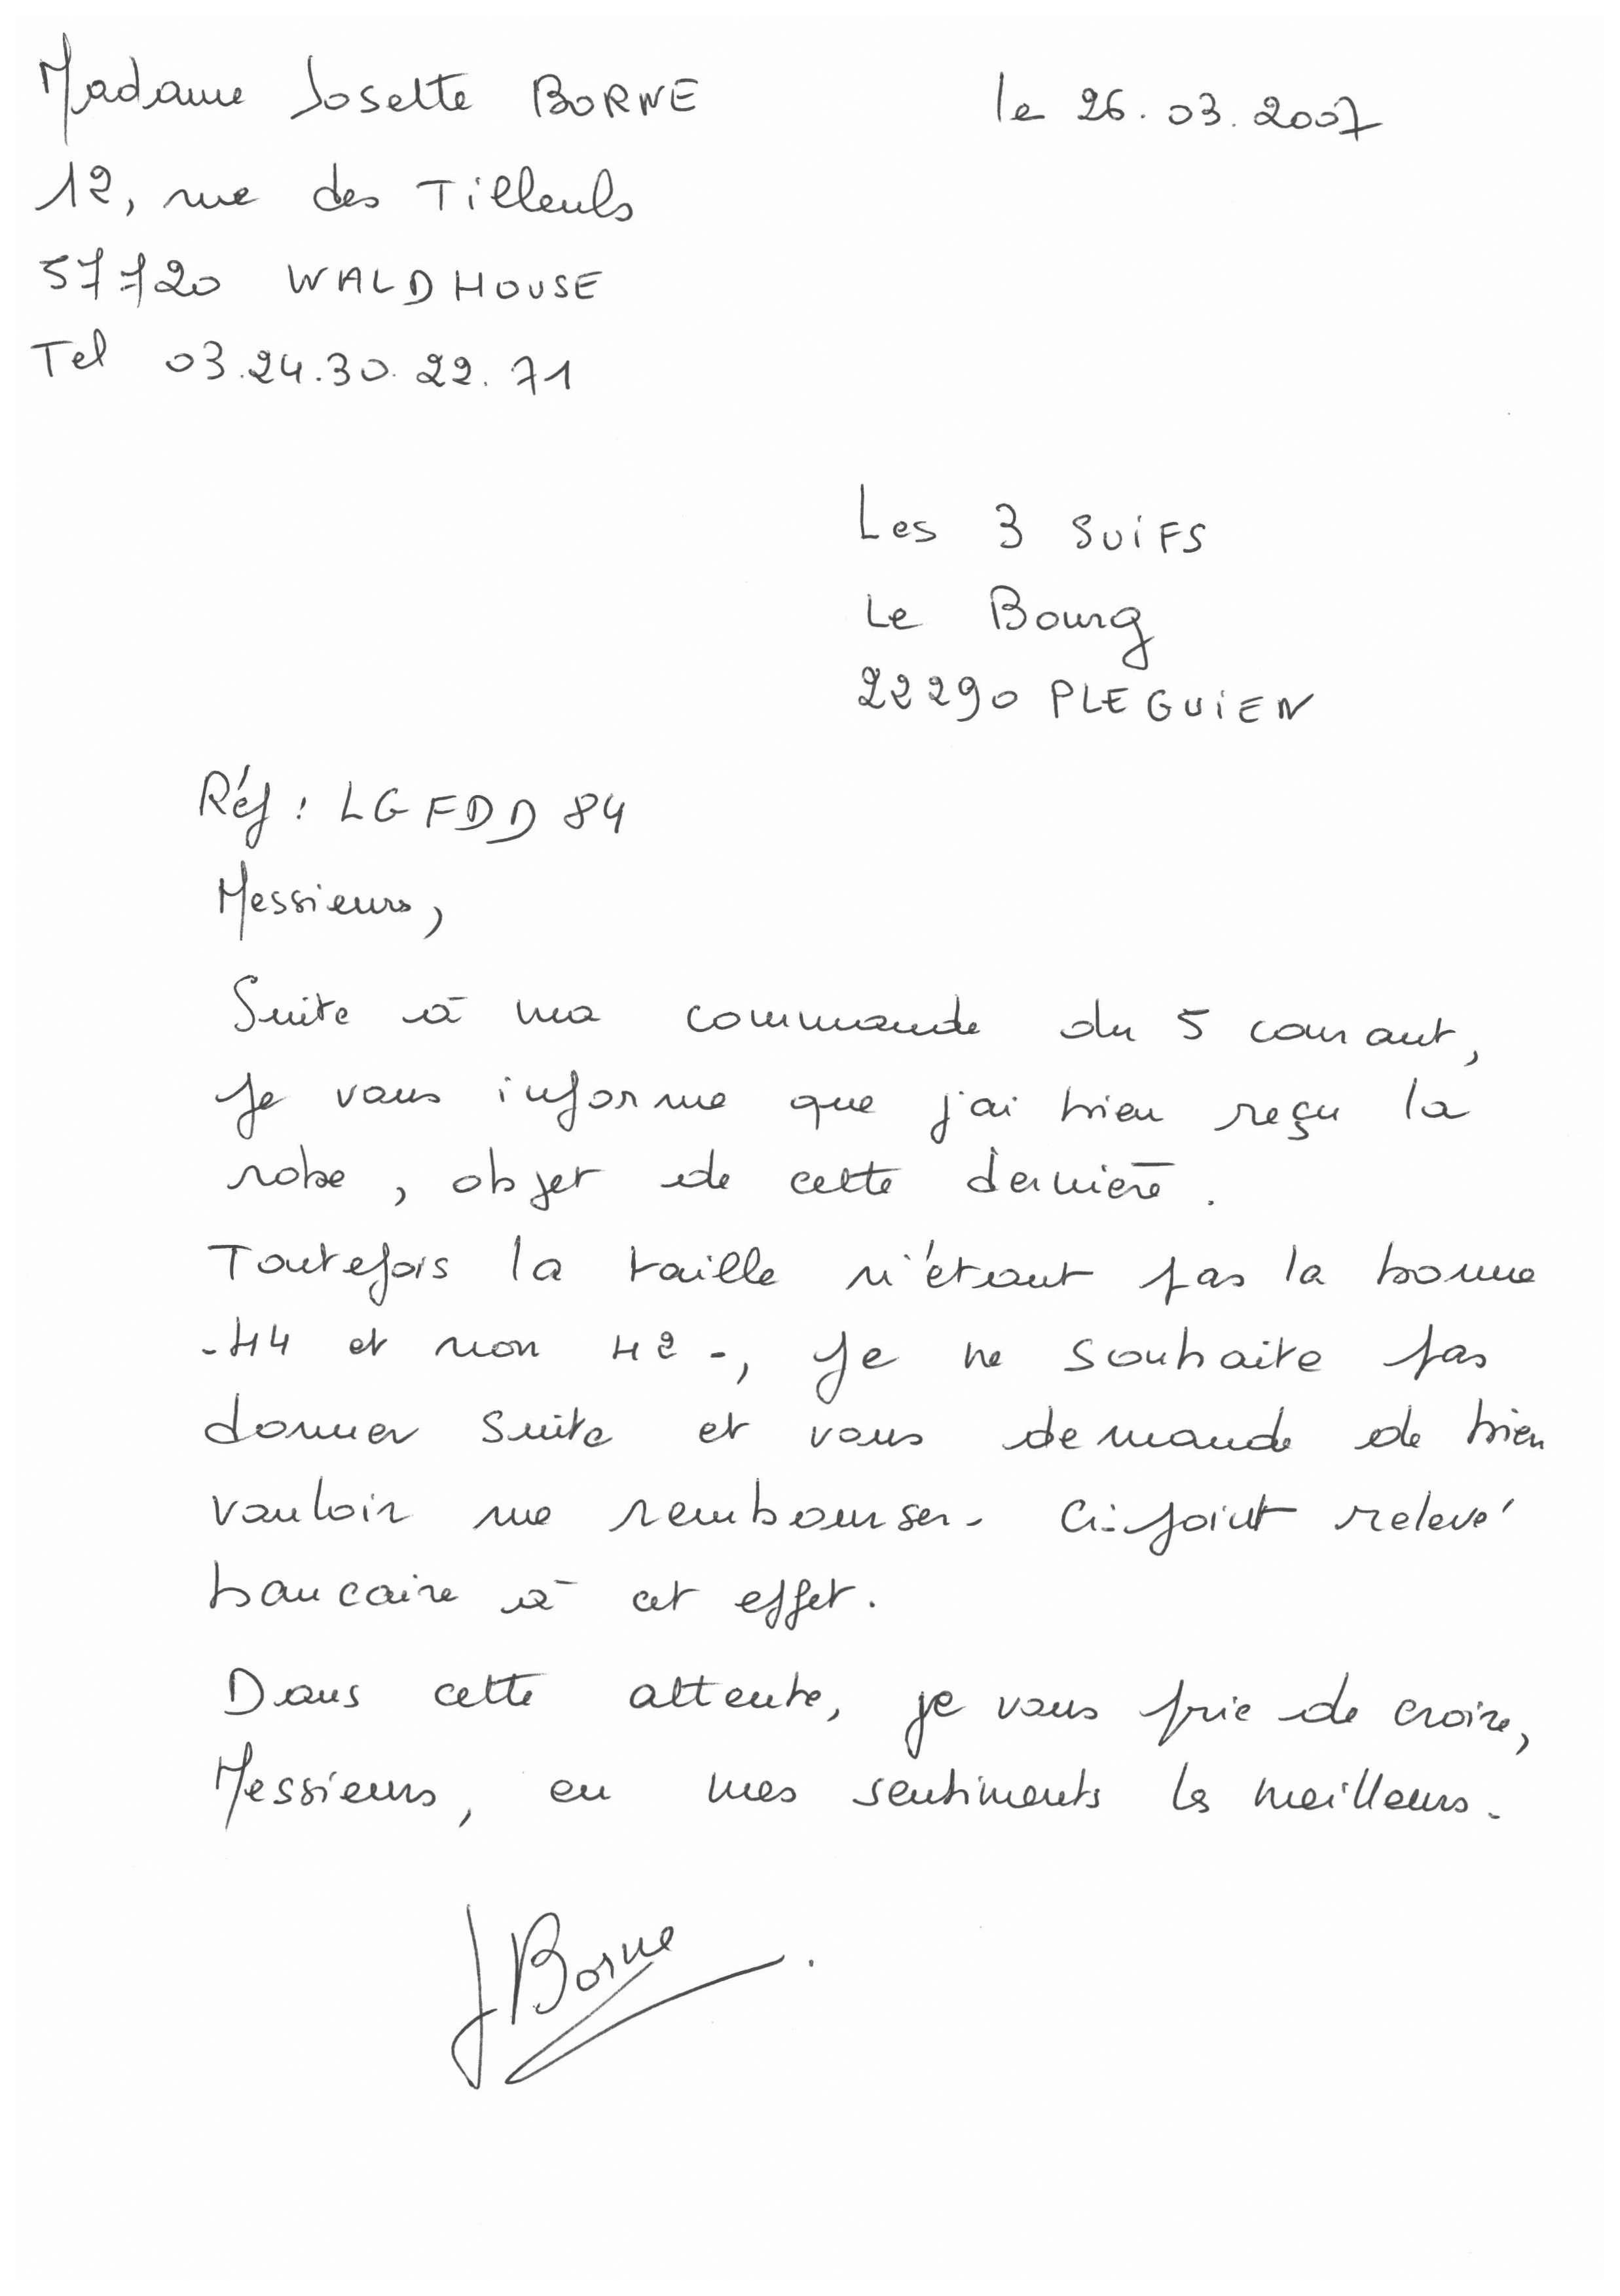 Madame Josette BORNE
le 26.03.2007
12, rue des Tilleuls
57720 WALDHOUSE
Tel 03.24.30.22.71
Les 3 SUiFS
Le Bourg
22290 PLEGUiEN
Réf : LGFDD84
Messieurs,
Suite à ma commande du 5 courant,
je vous informe que j'ai bien reçu la
robe, objet de cette dernière.
Toutefois la taille n'étant pas la bonne
-44 et non 42-, je ne souhaite pas
donner suite et vous demande de bien
vouloir me rembourser. Ci-joint relevé
bancaire à cet effet.
Dans cette attente, je vous prie de croire,
Messieurs, en mes sentiments les meilleurs.
JBorne